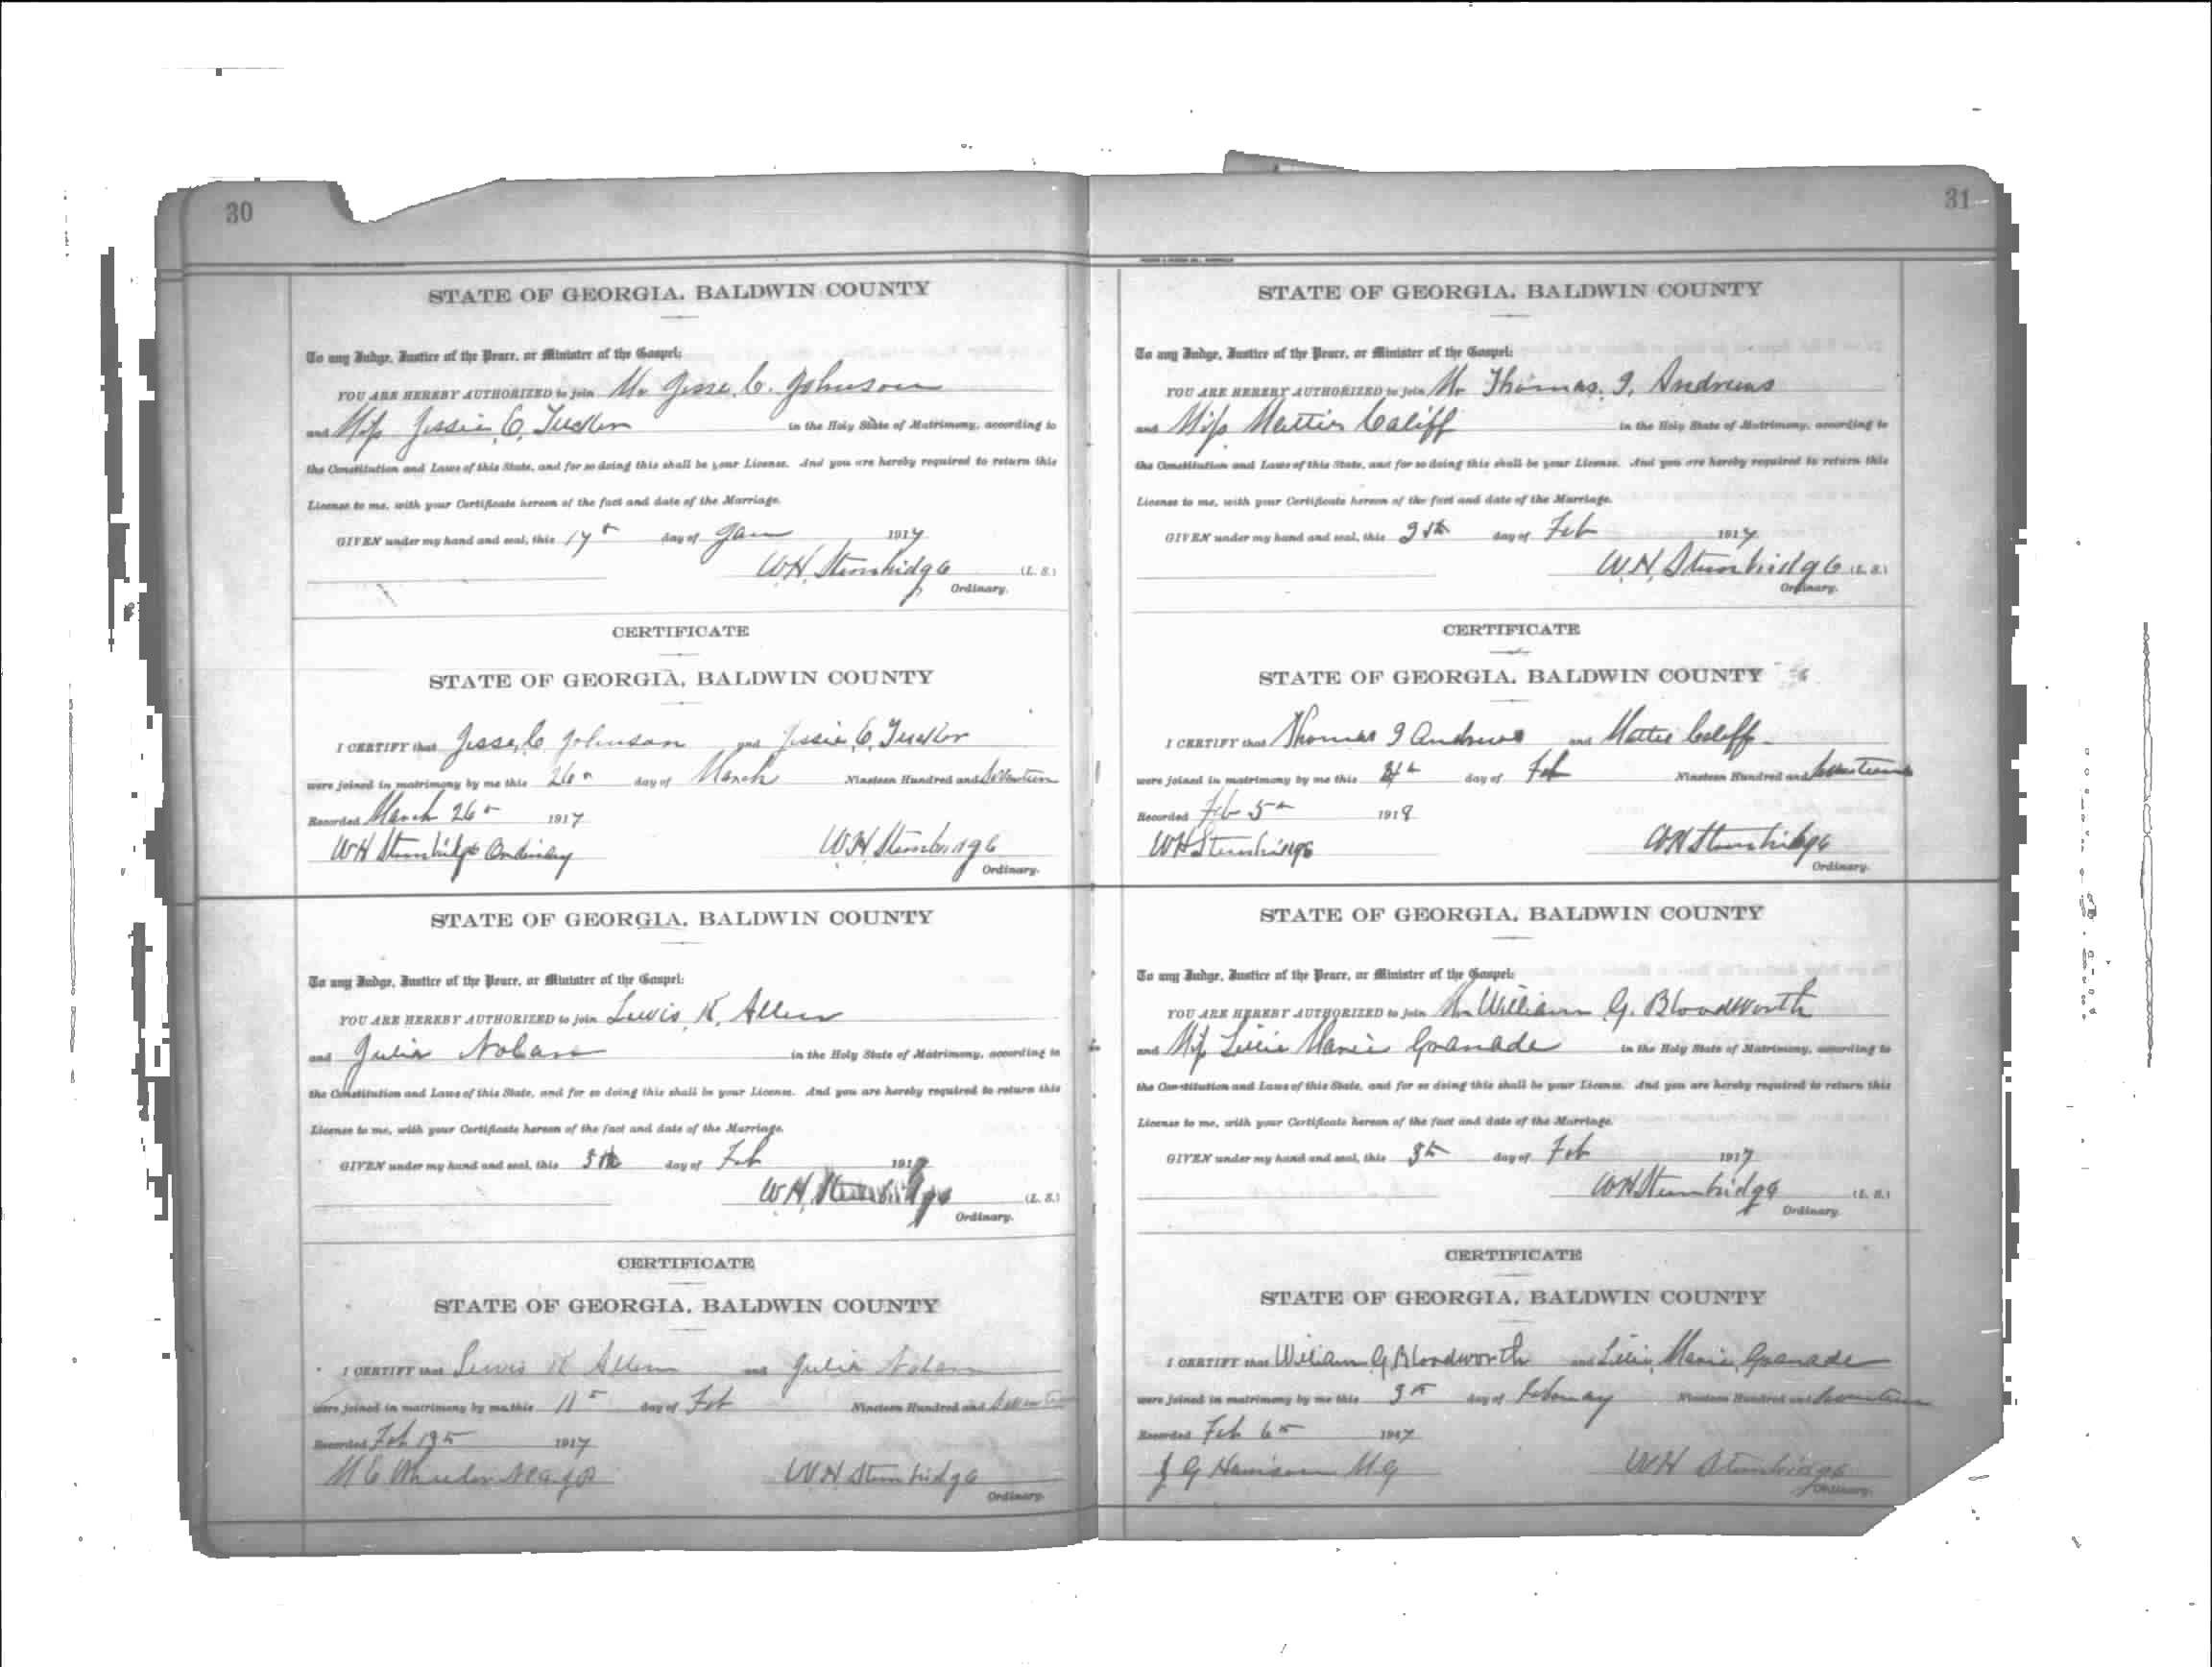 30
STATE OF GEORGIA, BALDWIN COUNTY
To any Judge, Justice of the Peace, or Minister of the Gospel:
YOU ARE HEREBY AUTHORIZED to join Mr Jesse C. Johnson
and Miss Jessie C. Tucker in the Holy State of Matrimony, according to
the Constitution and Laws of this State, and for so doing this shall be your License. And you are hereby required to return this
License to me, with your Certificate hereon of the fact and date of the Marriage.
GIVEN under my hand and seal, this 17th day of Jan 1917
W.H. Stembridge (L. S.)
Ordinary.
CERTIFICATE
STATE OF GEORGIA, BALDWIN COUNTY
I CERTIFY that Jesse C Johnson and Jessie C. Tucker
were joined in matrimony by me this 26th day of March Nineteen Hundred and Seventeen
Recorded March 26th 1917
W H Stembridge Ordinary W.H. Stembridge
Ordinary.
STATE OF GEORGIA, BALDWIN COUNTY
To any Judge, Justice of the Peace, or Minister of the Gospel:
YOU ARE HEREBY AUTHORIZED to join Lewis K. Allen
and Julia Nolan in the Holy State of Matrimony, according to
the Constitution and Laws of this State, and for so doing this shall be your License. And you are hereby required to return this
License to me, with your Certificate hereon of the fact and date of the Marriage.
GIVEN under my hand and seal, this 5th day of Feb 1917
W.H. Stembridge (L. S.)
Ordinary.
CERTIFICATE
STATE OF GEORGIA, BALDWIN COUNTY
I CERTIFY that Lewis K Allen and Julia Nolan
were joined in matrimony by me this 11th day of Feb Nineteen Hundred and Seventeen
Recorded Feb 19th 1917
W.H. Stembridge
Ordinary.
31
STATE OF GEORGIA, BALDWIN COUNTY
To any Judge, Justice of the Peace, or Minister of the Gospel:
YOU ARE HEREBY AUTHORIZED to join Mr Thomas. I. Andrews
and Miss Mattie Califf in the Holy State of Matrimony, according to
the Constitution and Laws of this State, and for so doing this shall be your License. And you are hereby required to return this
License to me, with your Certificate hereon of the fact and date of the Marriage.
GIVEN under my hand and seal, this 3th day of Feb 1917
W.H. Stembridge (L. S.)
Ordinary.
CERTIFICATE
STATE OF GEORGIA, BALDWIN COUNTY
I CERTIFY that Thomas I Andrews and Mattie Califf
were joined in matrimony by me this day of Feb Nineteen Hundred and Seventeen
Recorded Feb 5th 1919
W H Stembridge W H Stembridge
Ordinary.
STATE OF GEORGIA, BALDWIN COUNTY
To any Judge, Justice of the Peace, or Minister of the Gospel:
YOU ARE HEREBY AUTHORIZED to join Mr William G. Bloodworth
and Miss Lillie Marie Granade in the Holy State of Matrimony, according to
the Constitution and Laws of this State, and for so doing this shall be your License. And you are hereby required to return this
License to me, with your Certificate hereon of the fact and date of the Marriage.
GIVEN under my hand and seal, this 3th day of Feb 1917
W H Stembridge (L. S.)
Ordinary.
CERTIFICATE
STATE OF GEORGIA, BALDWIN COUNTY
I CERTIFY that William G Bloodworth and Lillie Marie Granade
were joined in matrimony by me this 3th day of February Nineteen Hundred and Seventeen
Recorded Feb 6th 1917
J G Harrison M G W H Stembridge
Ordinary.